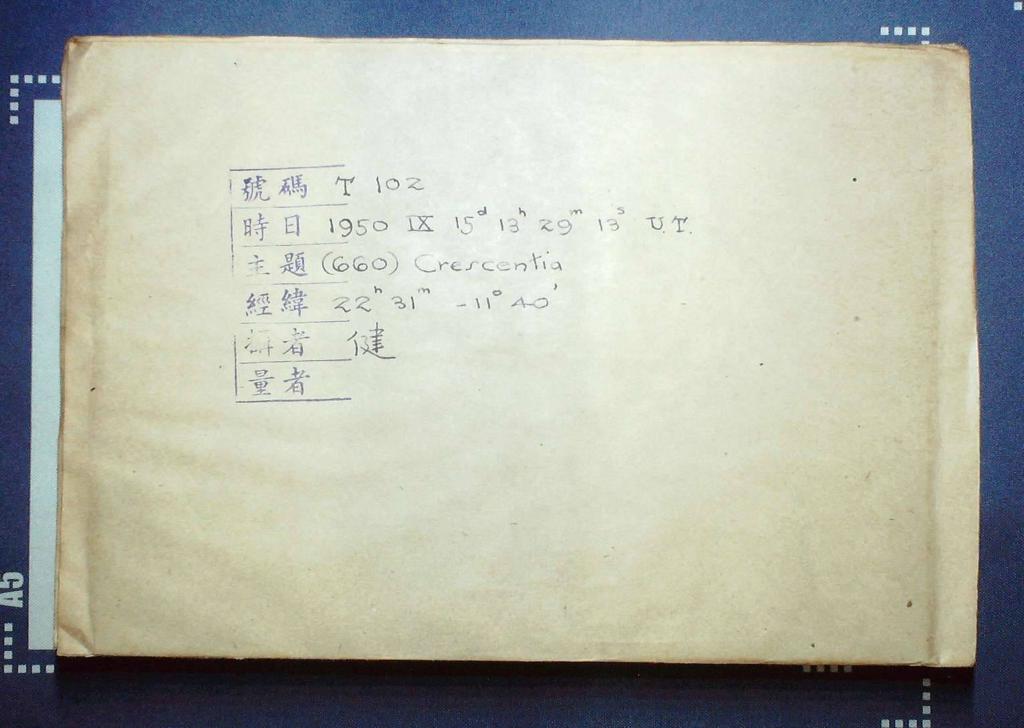 號碼 T 102
時日 1950 IX 15ᵈ 13ʰ 29ᵐ 13ˢ U.T.
主題 (660) Crescentia
經緯 22ʰ 31ᵐ -11° 40'
攝者 健
量者
A5